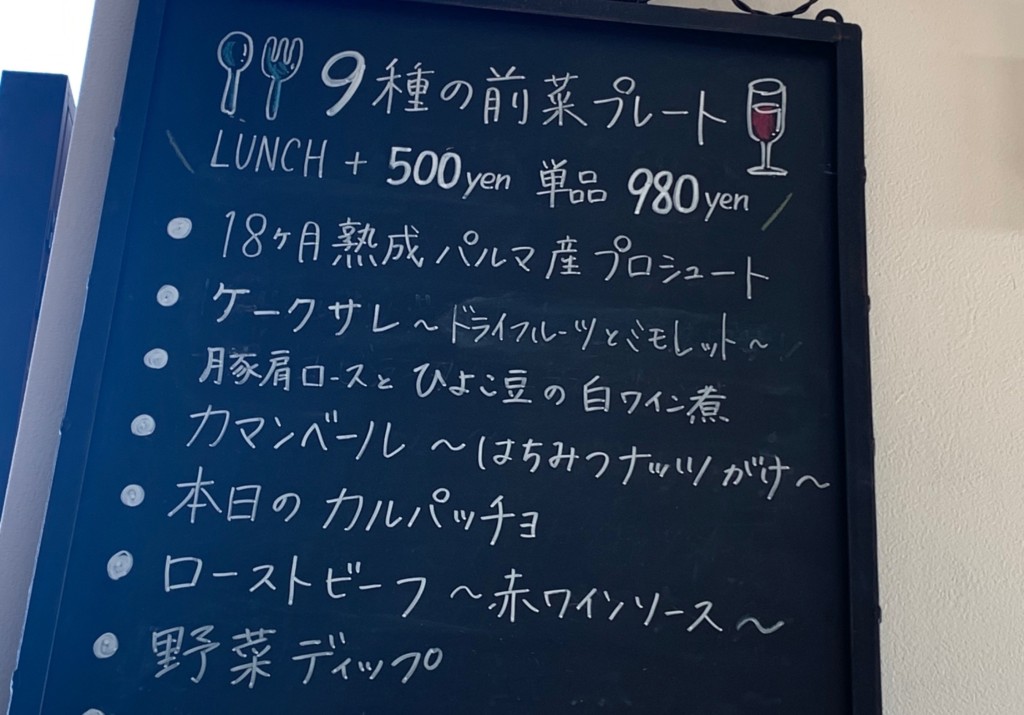 9種の前菜プレート
LUNCH + 500yen 単品 980yen
● 18ヶ月熟成パルマ産プロシュート
● ケークサレ ~ドライフルーツとミモレット~
● 豚肩ロースと ひよこ豆の白ワイン煮
● カマンベール ~はちみつナッツがけ~
● 本日のカルパッチョ
● ローストビーフ ~赤ワインソース~
● 野菜ディップ